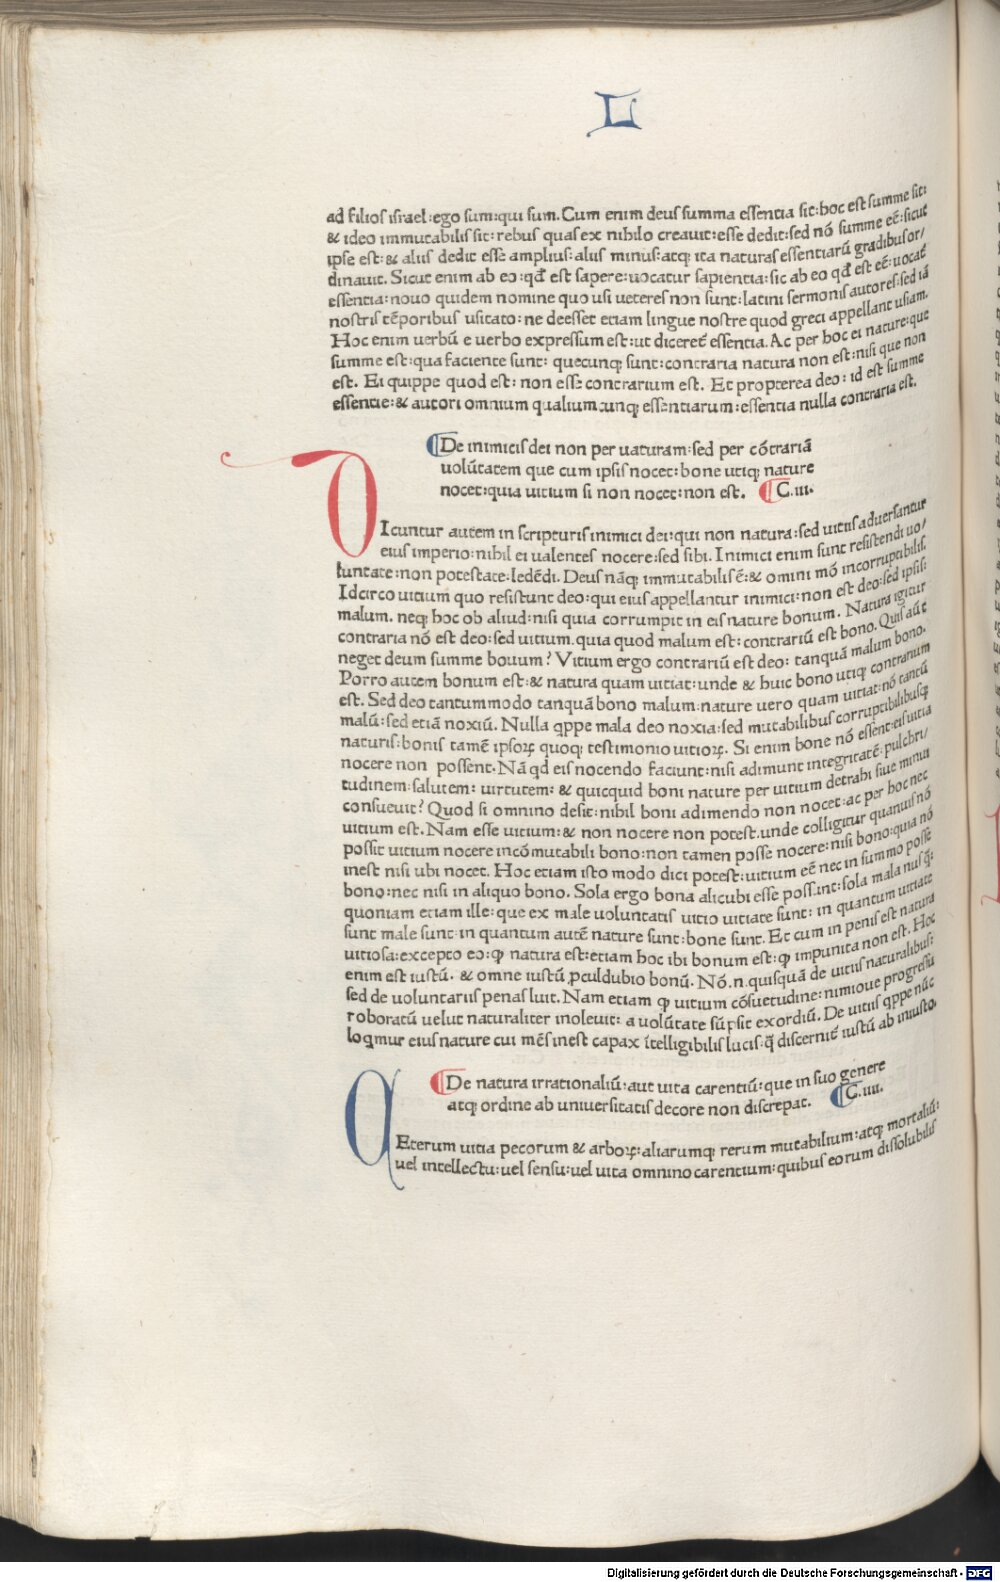 L
ad filios israel:ego sum:qui sum. Cum enim deus summa essentia sit:hoc est summe sit:
& ideo immutabilis sit:rebus quas ex nihilo creauit:esse dedit:sed nō summe eē:sicut
ipse est:& aliis dedit esse amplius:aliis minus:atq; ita naturas essentiarū gradibus or/
dinauit. Sicut enim ab eo:qđ est sapere:uocatur sapientia:sic ab eo qđ est eē:uocat̄
essentia:nouo quidem nomine quo usi ueteres non sunt:latini sermonis autores:sed iā
nostris tēporibus usitato:ne deesset etiam lingue nostre quod greci appellant usiam.
Hoc enim uerbū e uerbo expressum est:ut diceret̄ essentia. Ac per hoc ei nature:que
summe est:qua faciente sunt: quecunq; sunt:contraria natura non est:nisi que non
est. Ei quippe quod est: non esse contrarium est. Et propterea deo: id est summe
essentie:& autori omnium qualiumcunq; essentiarum:essentia nulla contraria est.
De inimicis dei non per uaturam:sed per cōtrariā
uolūtatem que cum ipsis nocet:bone utiq; nature
nocet:quia uitium si non nocet:non est. C.iii.
DIcuntur autem in scripturis inimici dei:qui non natura:sed uitiis aduersantur
eius imperio:nihil ei ualentes nocere:sed sibi. Inimici enim sunt resistendi uo/
luntate:non potestate:ledēdi. Deus nāq; immutabilis ē:& omini mō incorruptibilis.
Idcirco uitium quo resistunt deo:qui eius appellantur inimici:non est deo:sed ipsis:
malum. neq; hoc ob aliud:nisi quia corrumpit in eis nature bonum. Natura igitur
contraria nō est deo:sed uitium. quia quod malum est:contrariū est bono. Quis aūt
neget deum summe bouum? Vitium ergo contrariū est deo: tanquā malum bono.
Porro autem bonum est:& natura quam uitiat:unde & huic bono utiq; contrarium
est. Sed deo tantummodo tanquā bono malum:nature uero quam uitiat:nō tantū
malū:sed etiā noxiū. Nulla q̄ppe mala deo noxia:sed mutabilibus corruptibilibusq;
naturis:bonis tamē ipsoꝝ quoq; testimonio uitioꝝ. Si enim bone nō essent:eis uitia
nocere non possent. Nā qđ eis nocendo faciunt:nisi adimunt integritatē:pulchri/
tudinem:salutem: uirtutem: & quicquid boni nature per uitium detrahi siue minui
consueuit? Quod si omnino desit:nihil boni adimendo non nocet:ac per hoc nec
uitium est. Nam esse uitium:& non nocere non potest. unde colligitur quanuis nō
possit uitium nocere incōmutabili bono:non tamen posse nocere:nisi bono:quia nō
inest nisi ubi nocet. Hoc etiam isto modo dici potest:uitium eē nec in summo posse
bono:nec nisi in aliquo bono. Sola ergo bona alicubi esse possunt:sola mala nusq̄:
quoniam etiam ille:que ex male uoluntatis uitio uitiate sunt: in quantum uitiate
sunt male sunt:in quantum autē nature sunt:bone sunt. Et cum in penis est natura
uitiosa:excepto eo:ꝙ natura est:etiam hoc ibi bonum est:ꝙ impunita non est. Hoc
enim est iustū. & omne iustū ꝓculdubio bonū. Nō.n.quisquā de uitiis naturalibus:
sed de uoluntariis penas luit. Nam etiam ꝙ uitium cōsuetudine:nimioue progressu
roboratū uelut naturaliter inoleuit: a uolūtate sūpsit exordiū. De uitiis q̄ppe nūc
loq̄mur eius nature cui mēs inest capax ītelligibilis lucis:q̄ discernit̄ iustū ab iniusto.
De natura irrationaliū:aut uita carentiū:que in suo genere
atq; ordine ab uniuersitatis decore non discrepat. C.iiii.
CEterum uitia pecorum & arboꝝ:aliarumq; rerum mutabilium:atq; mortaliū:
uel intellectu:uel sensu:uel uita omnino carentium:quibus eorum dissolubilis
Digitalisierung gefördert durch die Deutsche Forschungsgemeinschaft - DFG